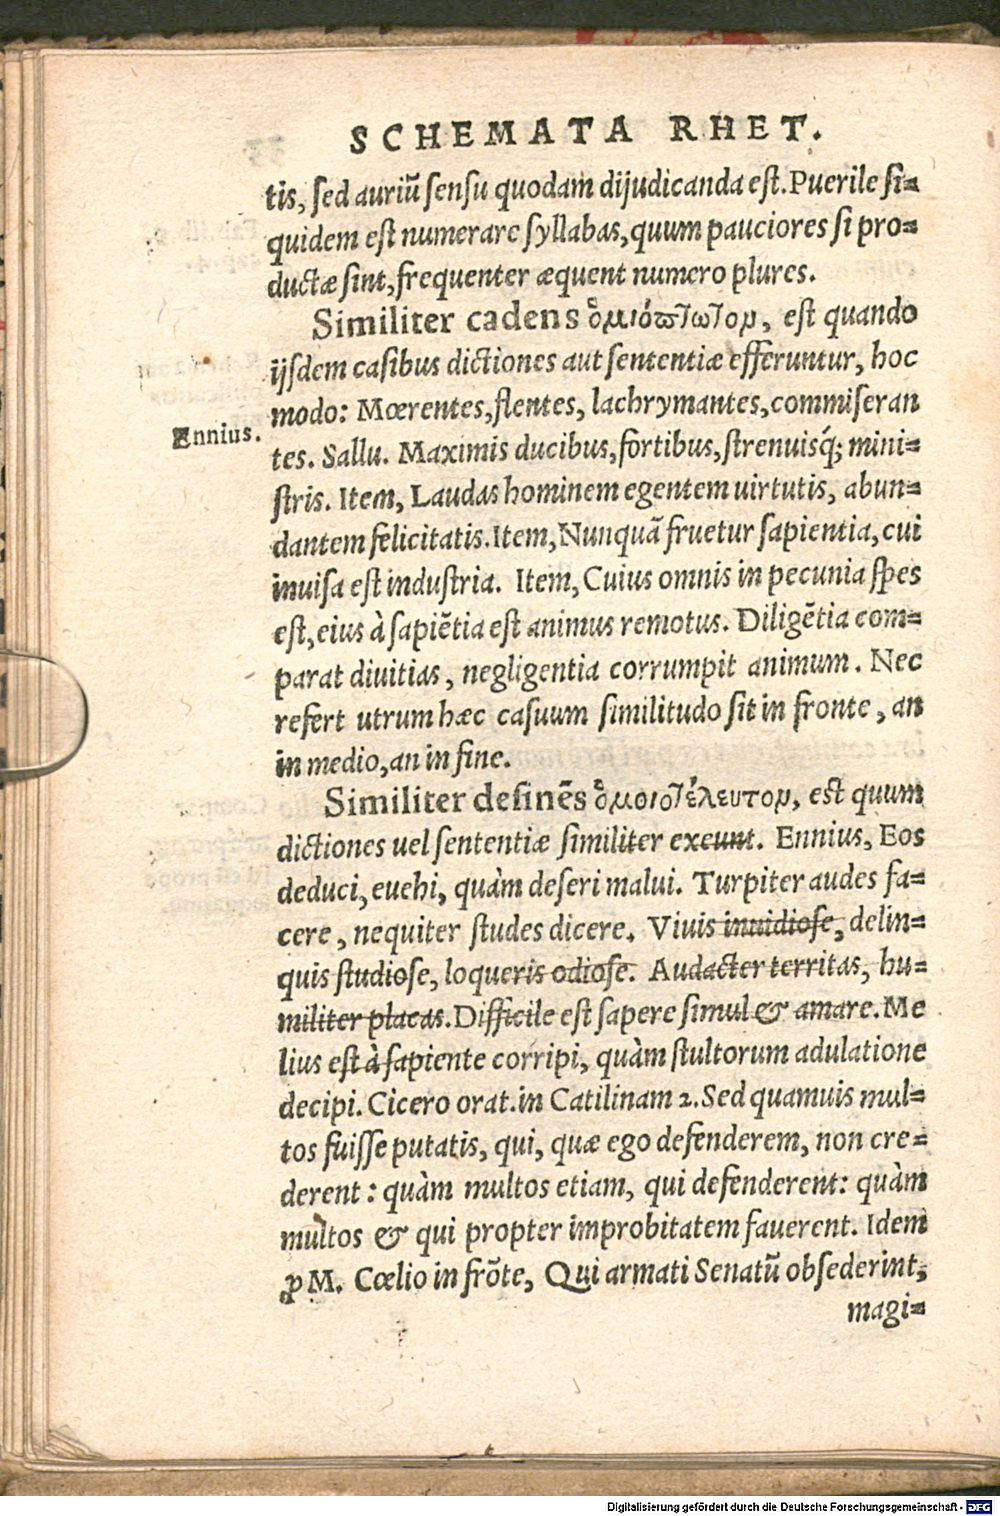 SCHEMATA RHET.
tis, sed auriũ sensu quodam dijudicanda est. Puerile si=
quidem est numerare syllabas, quum pauciores si pro=
ductæ sint, frequenter æquent numero plures.
Similiter cadens ὁμιόπτωτον, est quando
ijsdem casibus dictiones aut sententiæ efferuntur, hoc
modo: Mœrentes, flentes, lachrymantes, commiseran
Ennius.
tes. Sallu. Maximis ducibus, fortibus, strenuisq́; mini=
stris. Item, Laudas hominem egentem uirtutis, abun=
dantem felicitatis. Item, Nunquã fruetur sapientia, cui
inuisa est industria. Item, Cuius omnis in pecunia spes
est, eius à sapiẽtia est animus remotus. Diligẽtia com=
parat diuitias, negligentia corrumpit animum. Nec
refert utrum hæc casuum similitudo sit in fronte, an
in medio, an in fine.
Similiter desinẽs ὁμοιοτέλευτον, est quum
dictiones uel sententiæ similiter exeunt. Ennius, Eos
deduci, euehi, quàm deseri malui. Turpiter audes fa=
cere, nequiter studes dicere. Viuis inuidiose, delin=
quis studiose, loqueris odiose. Audacter territas, hu=
militer placas. Difficile est sapere simul & amare. Me
lius est à sapiente corripi, quàm stultorum adulatione
decipi. Cicero orat. in Catilinam 2. Sed quamuis mul=
tos fuisse putatis, qui, quæ ego defenderem, non cre=
derent: quàm multos etiam, qui defenderent: quàm
multos & qui propter improbitatem fauerent. Idem
ꝓ M. Cœlio in frõte, Qui armati Senatũ obsederint,
magi=
Digitalisierung gefördert durch die Deutsche Forschungsgemeinschaft - DFG